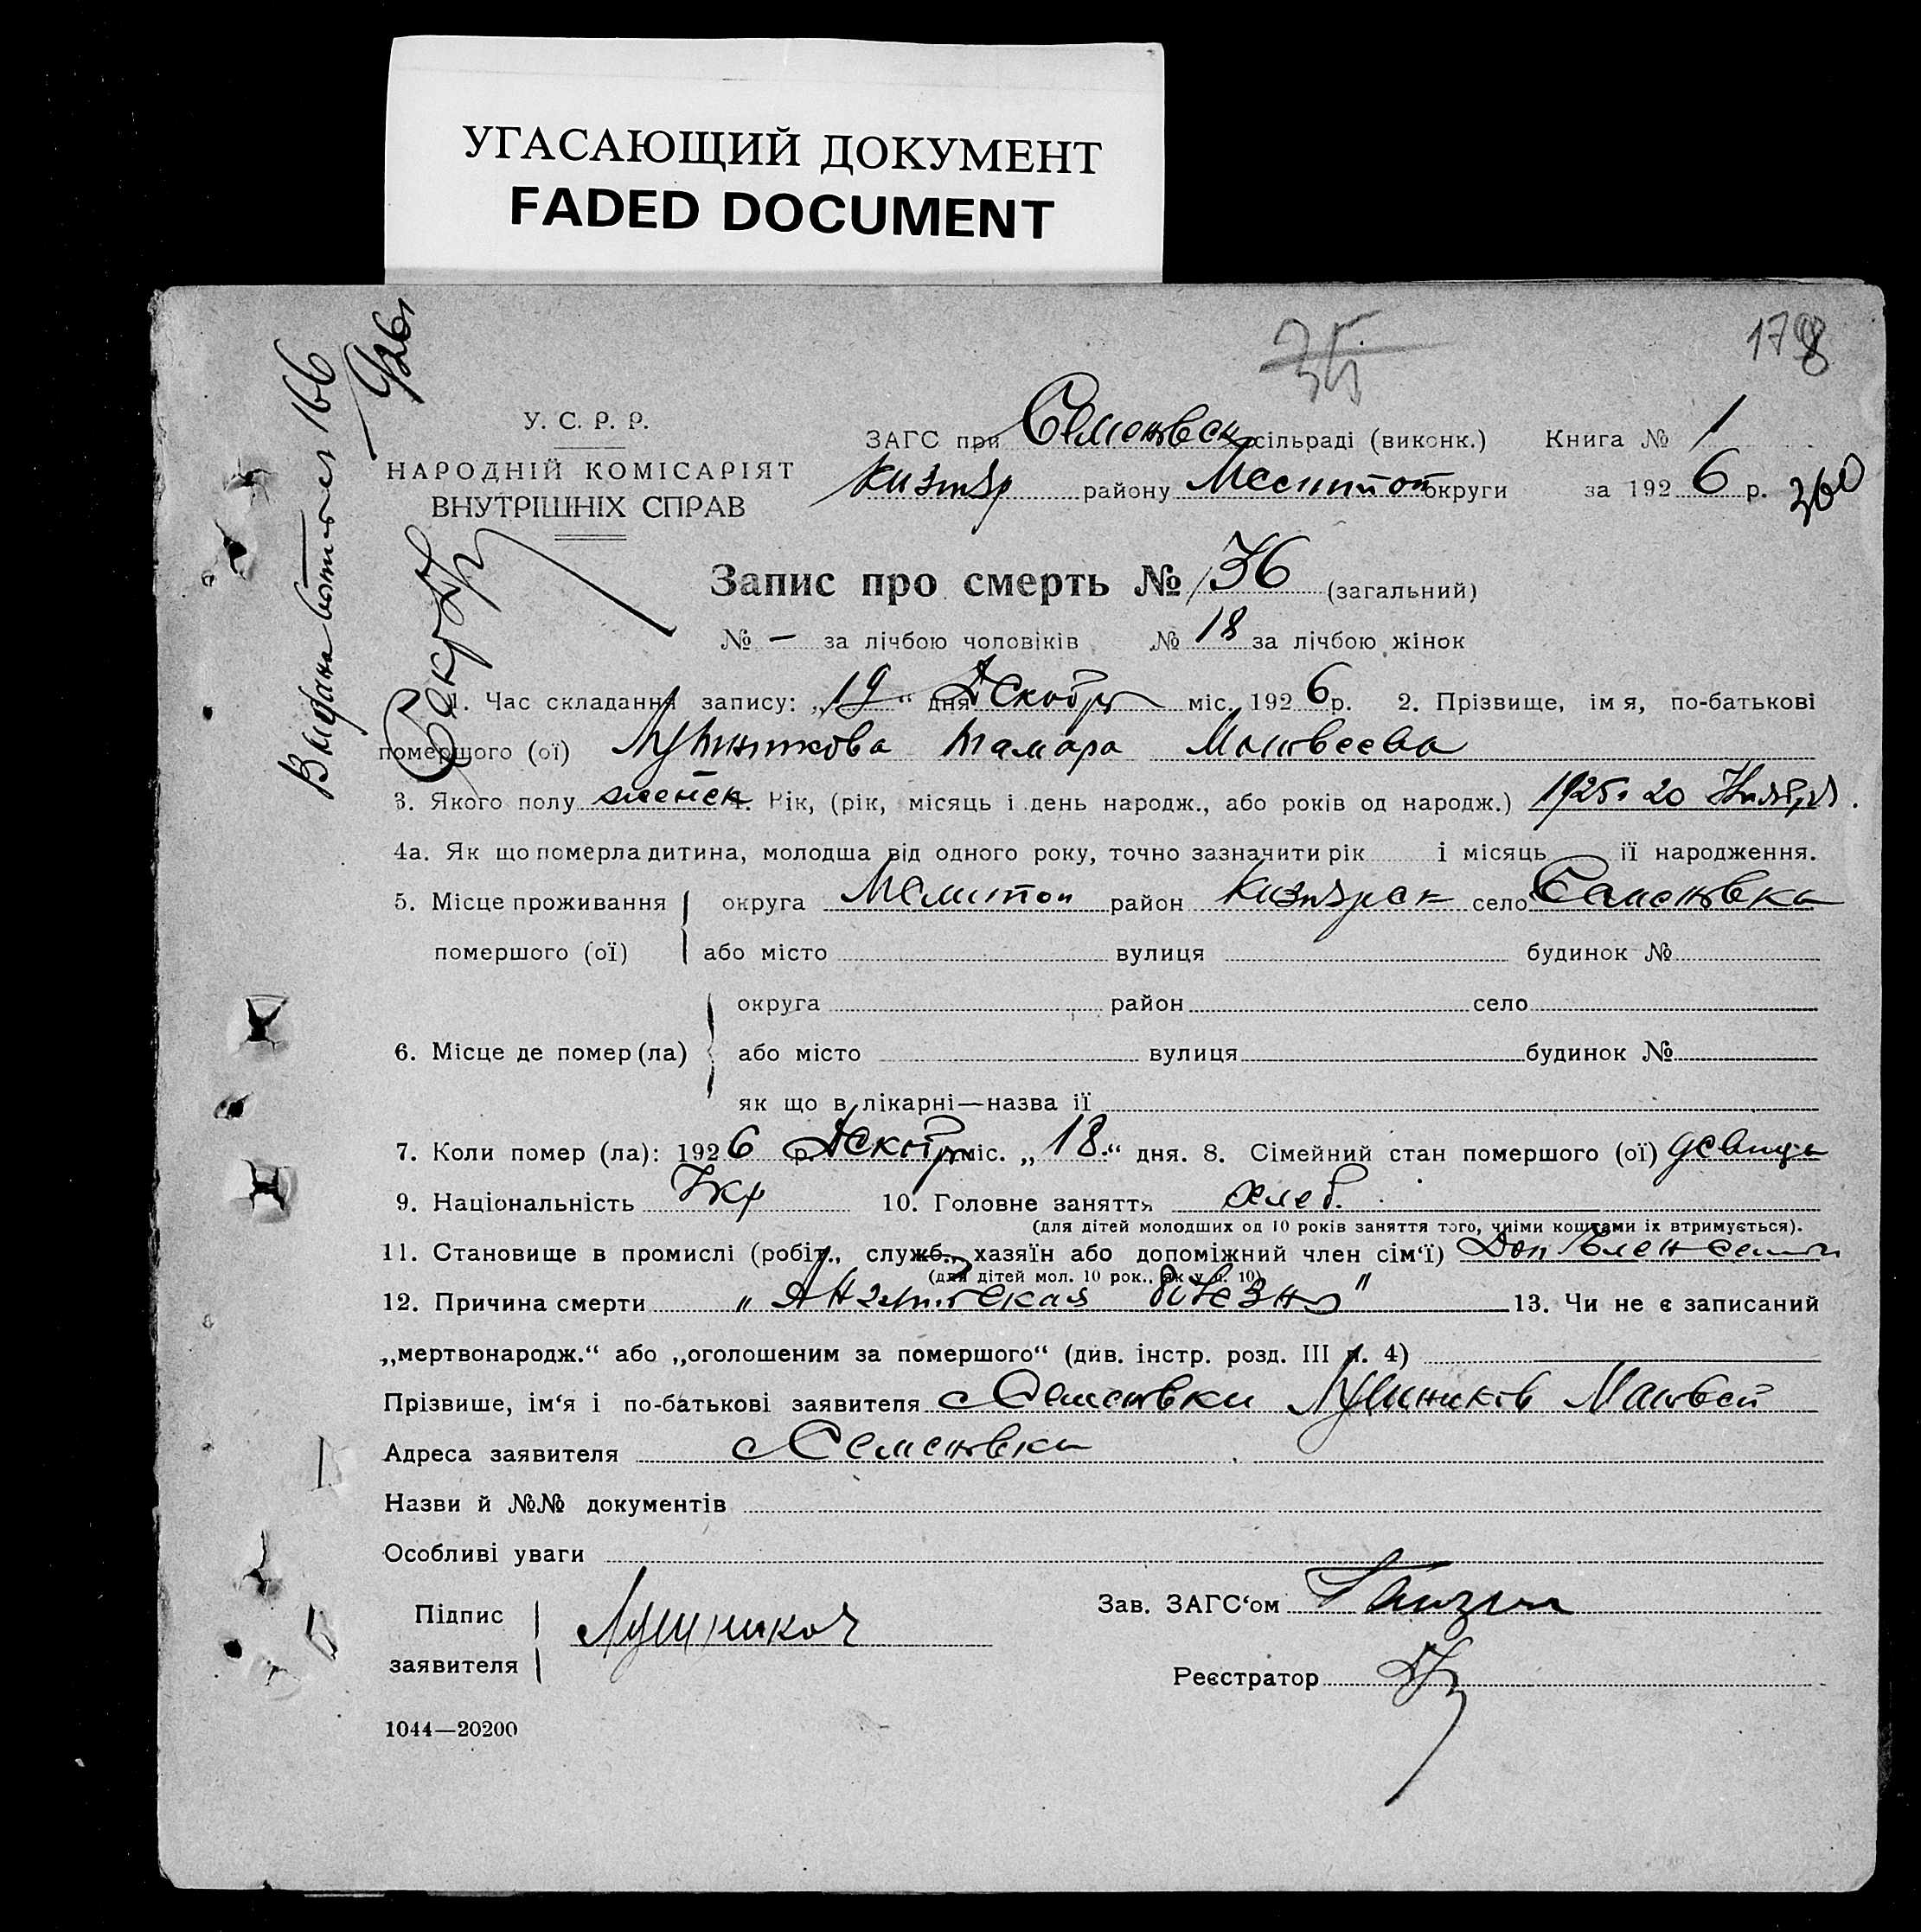 УГАСАЮЩИЙ ДОКУМЕНТ
FADED DOCUMENT
35
1798
У. С. Р. Р.
НАРОДНІЙ КОМІСАРІЯТ
ВНУТРІШНІХ СПРАВ
Выдана 166
926
ЗАГС при Семеновск сільраді (виконк.) Книга № 1
Кизияр району Мелитоп округи за 1926 р. 360
Запис про смерть № 36 (загальний)
№ — за лічбою чоловіків № 18 за лічбою жінок
1. Час складання запису: „19" дня Декабр міс. 1926 р. 2. Прізвище, імя, по-батькові
помершого (ої) Лушникова Тамара Матвеева
3. Якого полу женск 4. Рік, (рік, місяць і день народж., або років од народж.) 1925. 20 Ноября.
4а. Як що померла дитина, молодша від одного року, точно зазначити рік і місяць її народження.
5. Місце проживання округа Мелитоп район Кизиярск село Семеновка
помершого (ої) або місто вулиця будинок №
округа район село
6. Місце де помер(ла) або місто вулиця будинок №
як що в лікарні—назва її
7. Коли помер (ла): 1926 р. Декабр міс. „18." дня. 8. Сімейний стан помершого (ої) девица
9. Національність Укр 10. Головне заняття хлеб.
(для дітей молодших од 10 років заняття того, чиїми коштами їх втримується).
11. Становище в промислі (робіт., служб., хазяїн або допоміжний член сім'ї) Доп Член семьи
(для дітей мол. 10 рок., як у п. 10)
12. Причина смерти " Английская болезнь " 13. Чи не є записаний
„мертвонародж." або „оголошеним за помершого" (див. інстр. розд. III п. 4)
Прізвише, ім'я і по-батькові заявителя с Семеновки Лушников Матвей
Адреса заявителя с Семеновка
Назви й №№ документів
Особливі уваги
Підпис
заявителя
Лушников
Зав. ЗАГС'ом
Реєстратор
1044—20200